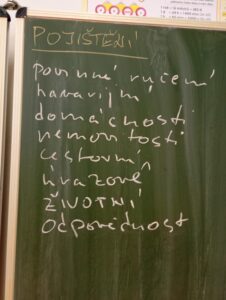 POJIŠTĚNÍ
povinné ručení
havarijní
domácnosti
nemovitosti
cestovní
úrazové
ŽIVOTNÍ
odpovědnost